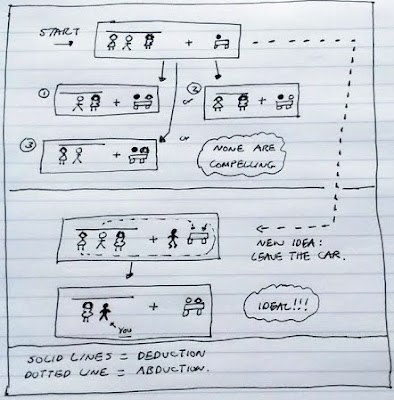 START
+
①
+
or
②
+
③
+
or
NONE ARE
COMPELLING
+
NEW IDEA:
LEAVE THE CAR.
+
YOU
IDEAL!!!
SOLID LINES = DEDUCTION
DOTTED LINE = ABDUCTION.